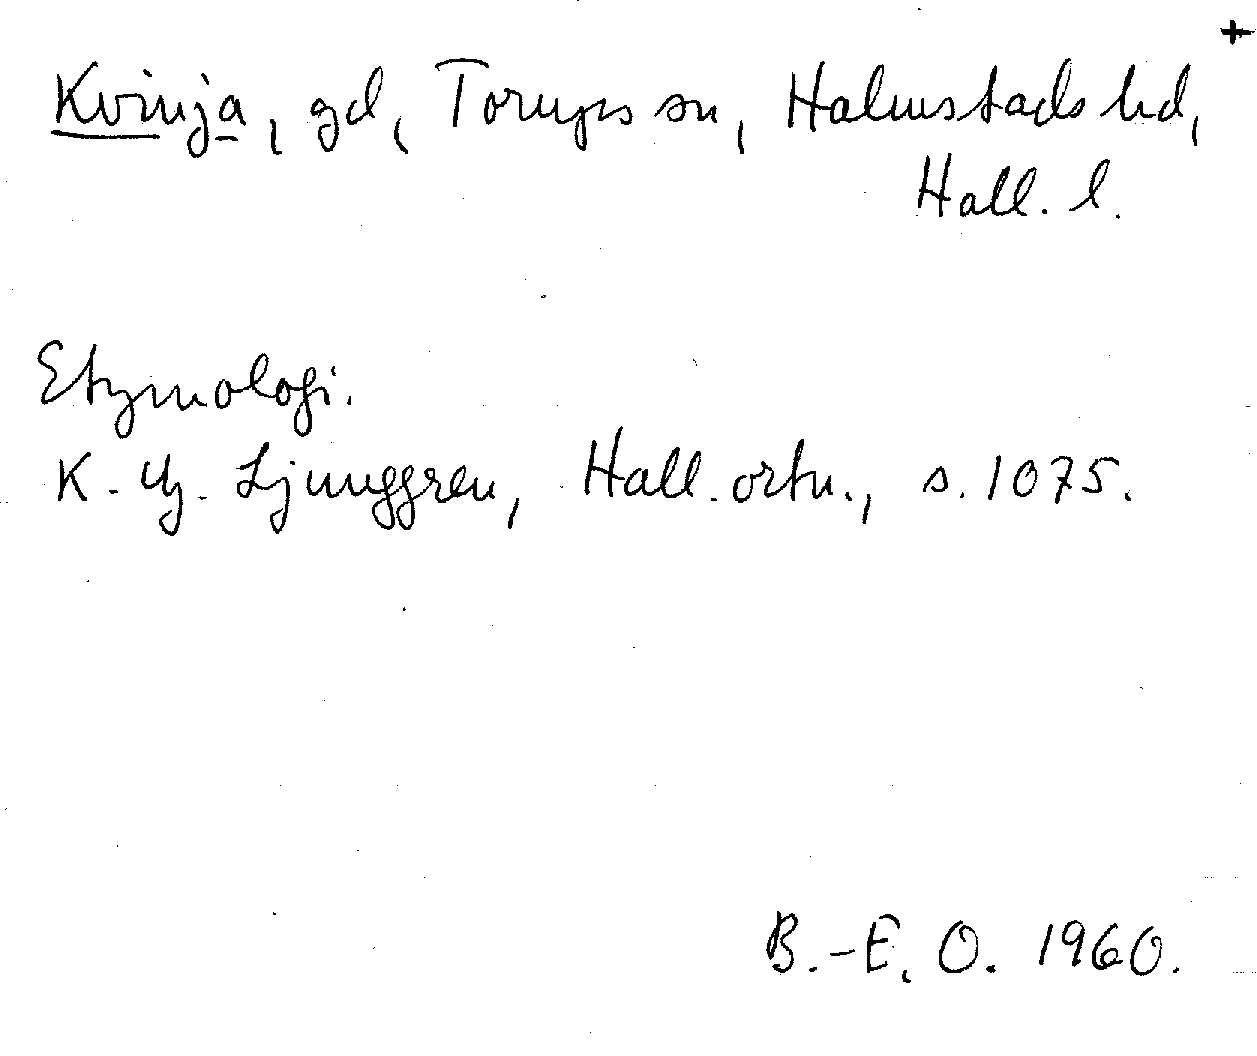 +
Kvinja, gd, Torups sn, Halmstads hd,
Hall. l.
Etymologi.
K. G. Ljunggren, Hall. ortn., s. 1075.
B.-E. O. 1960.